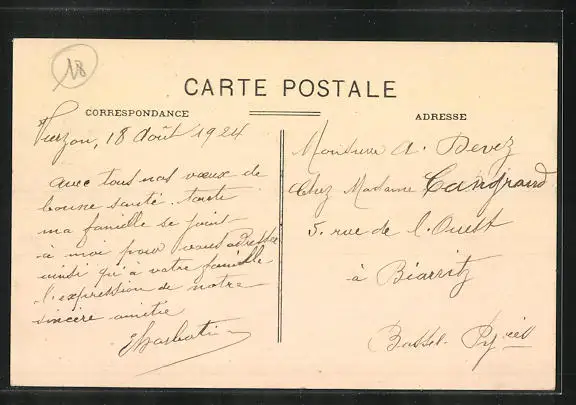 18
CARTE POSTALE
CORRESPONDANCE
ADRESSE
Vierzon, 18 Août 1924
avec tous nos vœux de
bonne santé. toute
ma famille se joint
à moi pour vous adresser
ainsi qu'à votre famille
l'expression de notre
sincère amitié
Monsieur A. Devez
Chez Madame Cangrand
5, rue de l'Ouest
à Biarritz
Basses-Pyrées